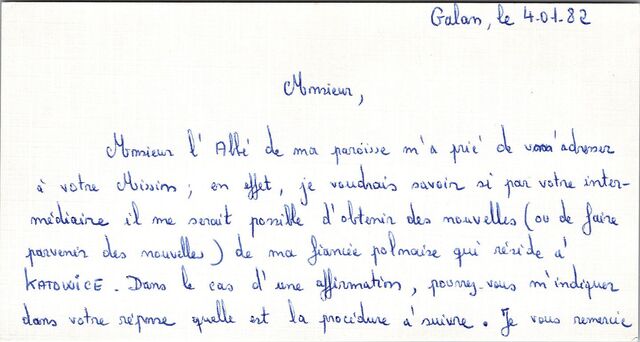 Galan, le 4.01.82
Monsieur,
Monsieur l'Abbé de ma paroisse m'a prié de m'adresser
à votre Mission ; en effet, je voudrais savoir si par votre inter-
médiaire il me serait possible d'obtenir des nouvelles (ou de faire
parvenir des nouvelles) de ma fiancée polonaise qui réside à
KATOWICE. Dans le cas d'une affirmation, pourrez-vous m'indiquer
dans votre réponse quelle est la procédure à suivre. Je vous remercie